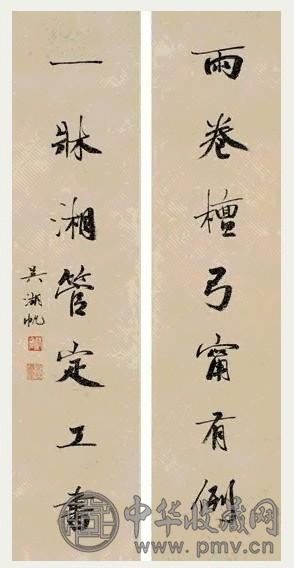 兩卷檀弓甯有例
一牀湘管定工書
吳湖帆
中华收藏网
www.pmv.cn